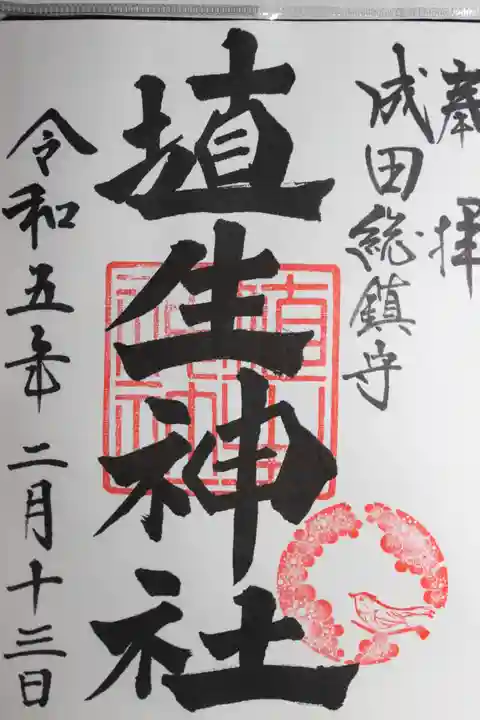 奉拝
成田総鎮守
埴生神社
令和五年二月十三日